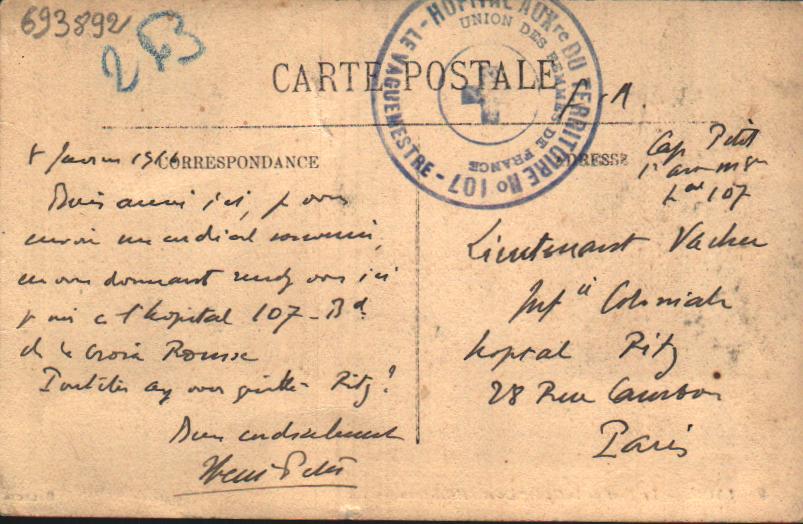 693892
253
HOPITAL AUXre DU TERRITOIRE No 107 - LE VAGUEMESTRE -
UNION DES FEMMES DE FRANCE
CARTE POSTALE
CORRESPONDANCE
ADRESSE
Janvier 1916
Bien arrivé ici, je vous
envoie un cordial souvenir,
en vous donnant rendez vous ici
je suis à l'hopital 107 - Bd
de la Croix Rousse
Peut être avez vous quitté Ritz ?
Bien cordialement
Henri Petit
Cap Petit
107
Lieutenant Vacher
Infie Coloniale
hopital Ritz
28 Rue Cambon
Paris